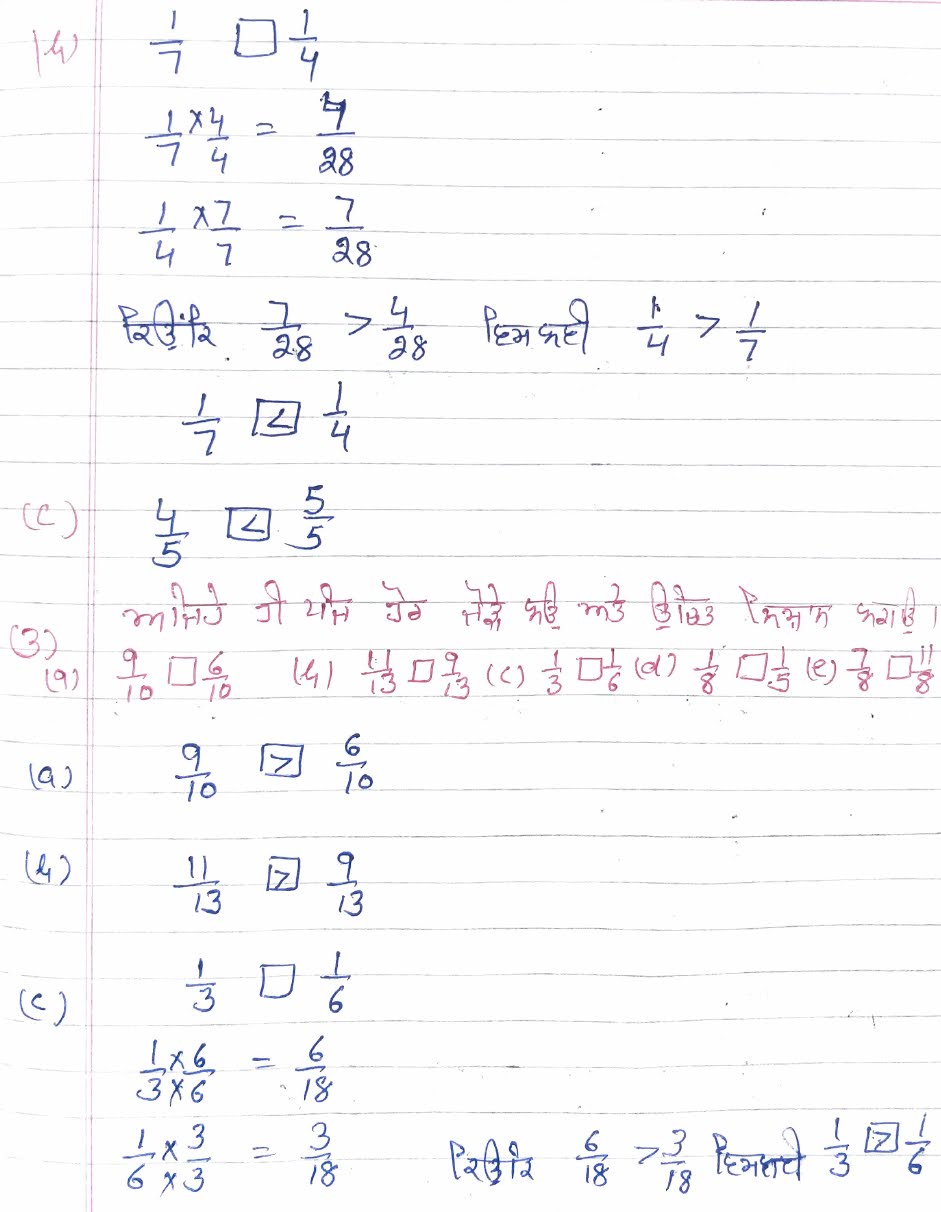 (b) 1/7 □ 1/4
1/7 × 4/4 = 4/28
1/4 × 7/7 = 7/28
ਕਿਉਂਕਿ 7/28 > 4/28 ਇਸ ਲਈ 1/4 > 1/7
1/7 < 1/4
(c) 4/5 < 5/5
(3) ਅਜਿਹੇ ਹੀ ਪੰਜ ਹੋਰ ਜੋੜੇ ਲਉ ਅਤੇ ਉਚਿਤ ਨਿਸ਼ਾਨ ਲਗਾਉ।
(a) 9/10 □ 6/10 (b) 11/13 □ 9/13 (c) 1/3 □ 1/6 (d) 1/8 □ 1/5 (e) 7/8 □ 11/8
(a) 9/10 > 6/10
(b) 11/13 > 9/13
(c) 1/3 □ 1/6
1/3 × 6/6 = 6/18
1/6 × 3/3 = 3/18 ਕਿਉਂਕਿ 6/18 > 3/18 ਇਸ ਲਈ 1/3 > 1/6